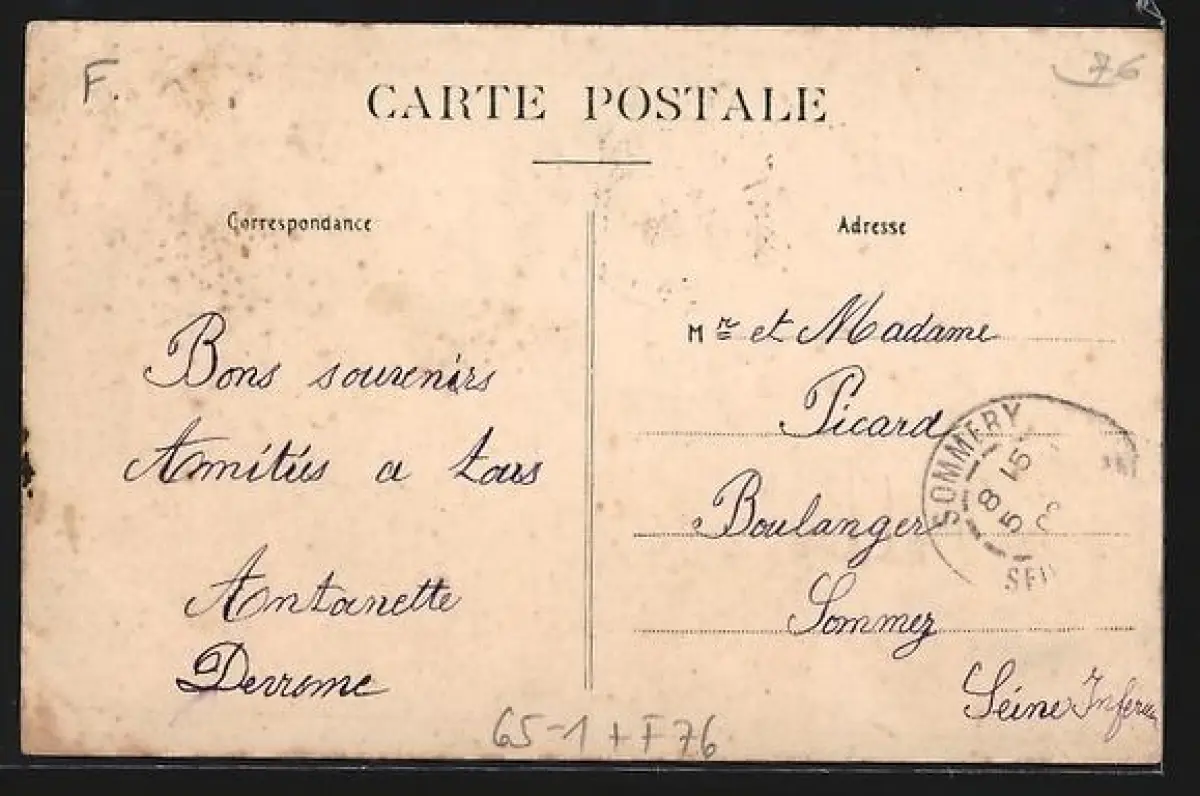 F.
76
CARTE POSTALE
Correspondance
Adresse
Bons souvenirs
Amitiés a tous
Antoinette
Derrome
Mr et Madame
Picard
Boulanger
Sommery
Séine Inferieu
SOMMERY
8 15
5
SEI
65-1 + F76